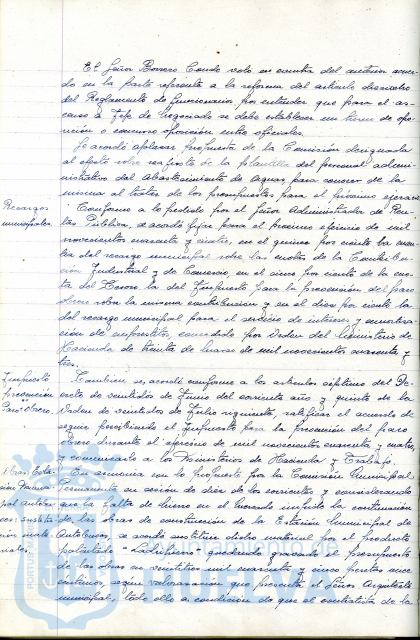 El Señor Borrero Conde votó en contra del anterior acuer-
do en la parte referente a la reforma del artículo dieciocho
del Reglamento de funcionarios por entender que para el as-
censo a Jefe de Negociado se debe establecer un turno de opo-
sición o concurso oposición entre oficiales.
Se acordó aplazar propuesta de la Comisión designada
al efecto sobre reajuste de la plantilla del personal admi-
nistrativo del Abastecimiento de Aguas para conocer de la
misma al tratar de los presupuestos para el próximo ejercicio
Recargos
municipales.
Conforme a lo pedido por el Señor Administrador de Ren-
tas Públicas, se acordó fijar para el próximo ejercicio de mil
novecientos cuarenta y cuatro, en el quince por ciento la cuan-
tía del recargo municipal sobre las cuotas de la Contribu-
ción Industrial y de Comercio, en el cinco por ciento de la cuo-
ta del Tesoro la del Impuesto para la prevención del paro
obrero sobre la misma contribución y en el diez por ciento la
del recargo municipal para el servicio de interés y amortiza-
ción de empréstitos, concedido por Orden del Ministerio de
Hacienda de treinta de Marzo de mil novecientos cuarenta y
tres.
Impuesto
prevención
Paro Obrero.
También se acordó conforme a los artículos séptimo del De-
creto de veintidos de Junio del corriente año y quinto de la
Orden de veintidos de Julio siguiente, ratificar el acuerdo de
seguir percibiendo el Impuesto para la prevención del paro
obrero durante el ejercicio de mil novecientos cuarenta y cuatro,
y comunicarlo a los Ministerios de Hacienda y Trabajo.
Obras Esta-
ción
En armonía con lo propuesto por la Comisión Municipal
Permanente en sesión de diez de los corrientes y considerando
que la falta de hierro en el mercado impide la continuación
de las obras de construcción de la Estación Municipal de
Autobuses, se acordó sustituir dicho material por el producto
patentado "Ladrihierro" quedando gravado el presupuesto
de las obras en veintitres mil cuarenta y cinco pesetas once
céntimos, según valoración que presenta el Señor Arquitecto
municipal, todo ello a condición de que el contratista de la
PORTUS
HUELVA